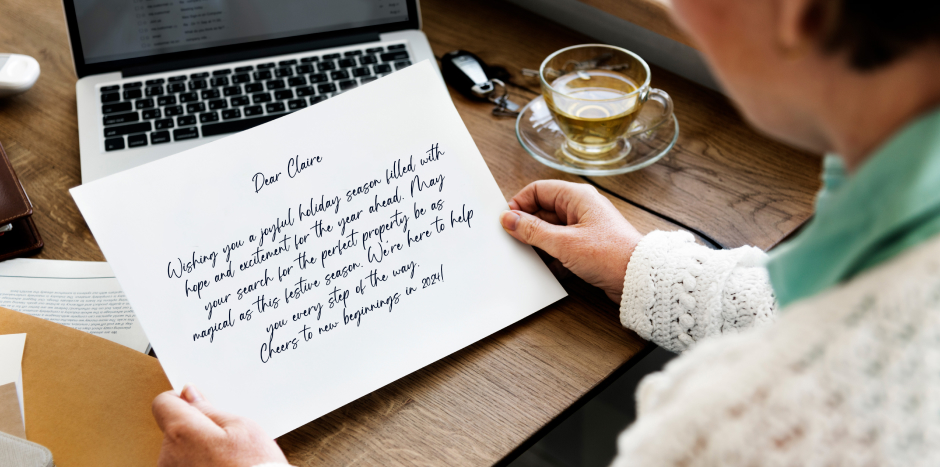 Dear Claire
Wishing you a joyful holiday season filled with
hope and excitement for the year ahead. May
your search for the perfect property be as
magical as this festive season. We're here to help
you every step of the way.
Cheers to new beginnings in 2024!